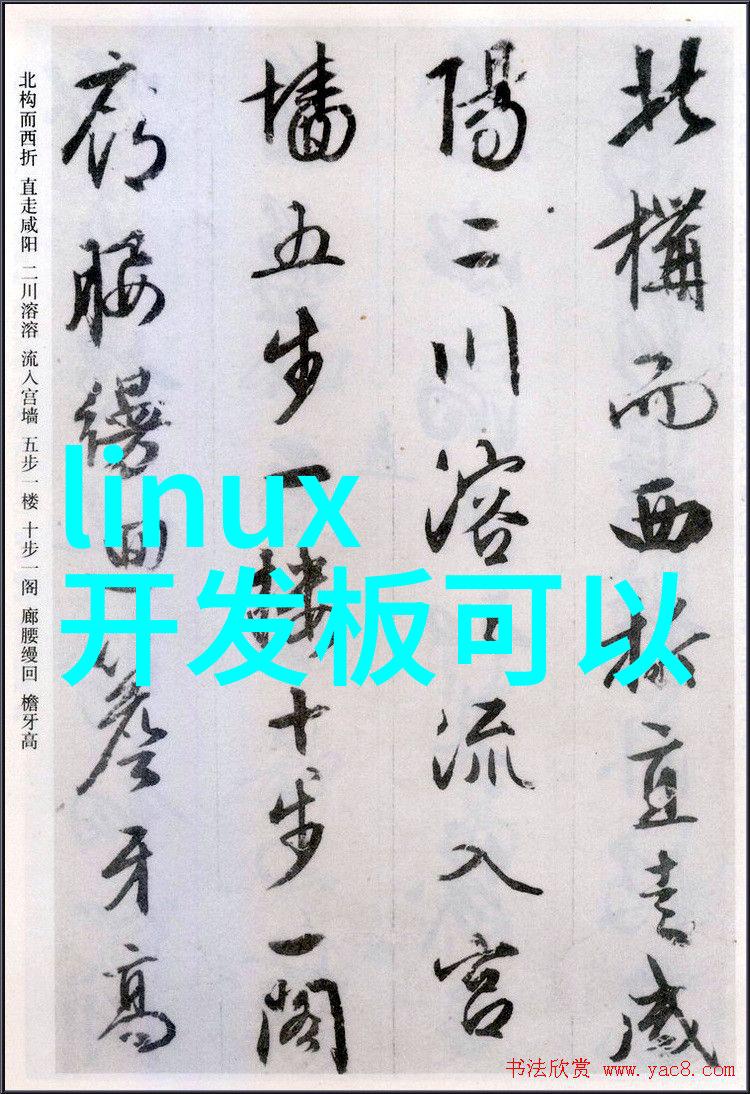 北構而西折直走咸
陽二川溶〻流入宮
墻五步一樓十步一閣
廊腰縵迴簷牙高
北构而西折 直走咸阳 二川溶溶 流入宫墙 五步一楼 十步一阁 廊腰缦回 檐牙高
linux
开发板可以
书法欣赏 www.yac8.com